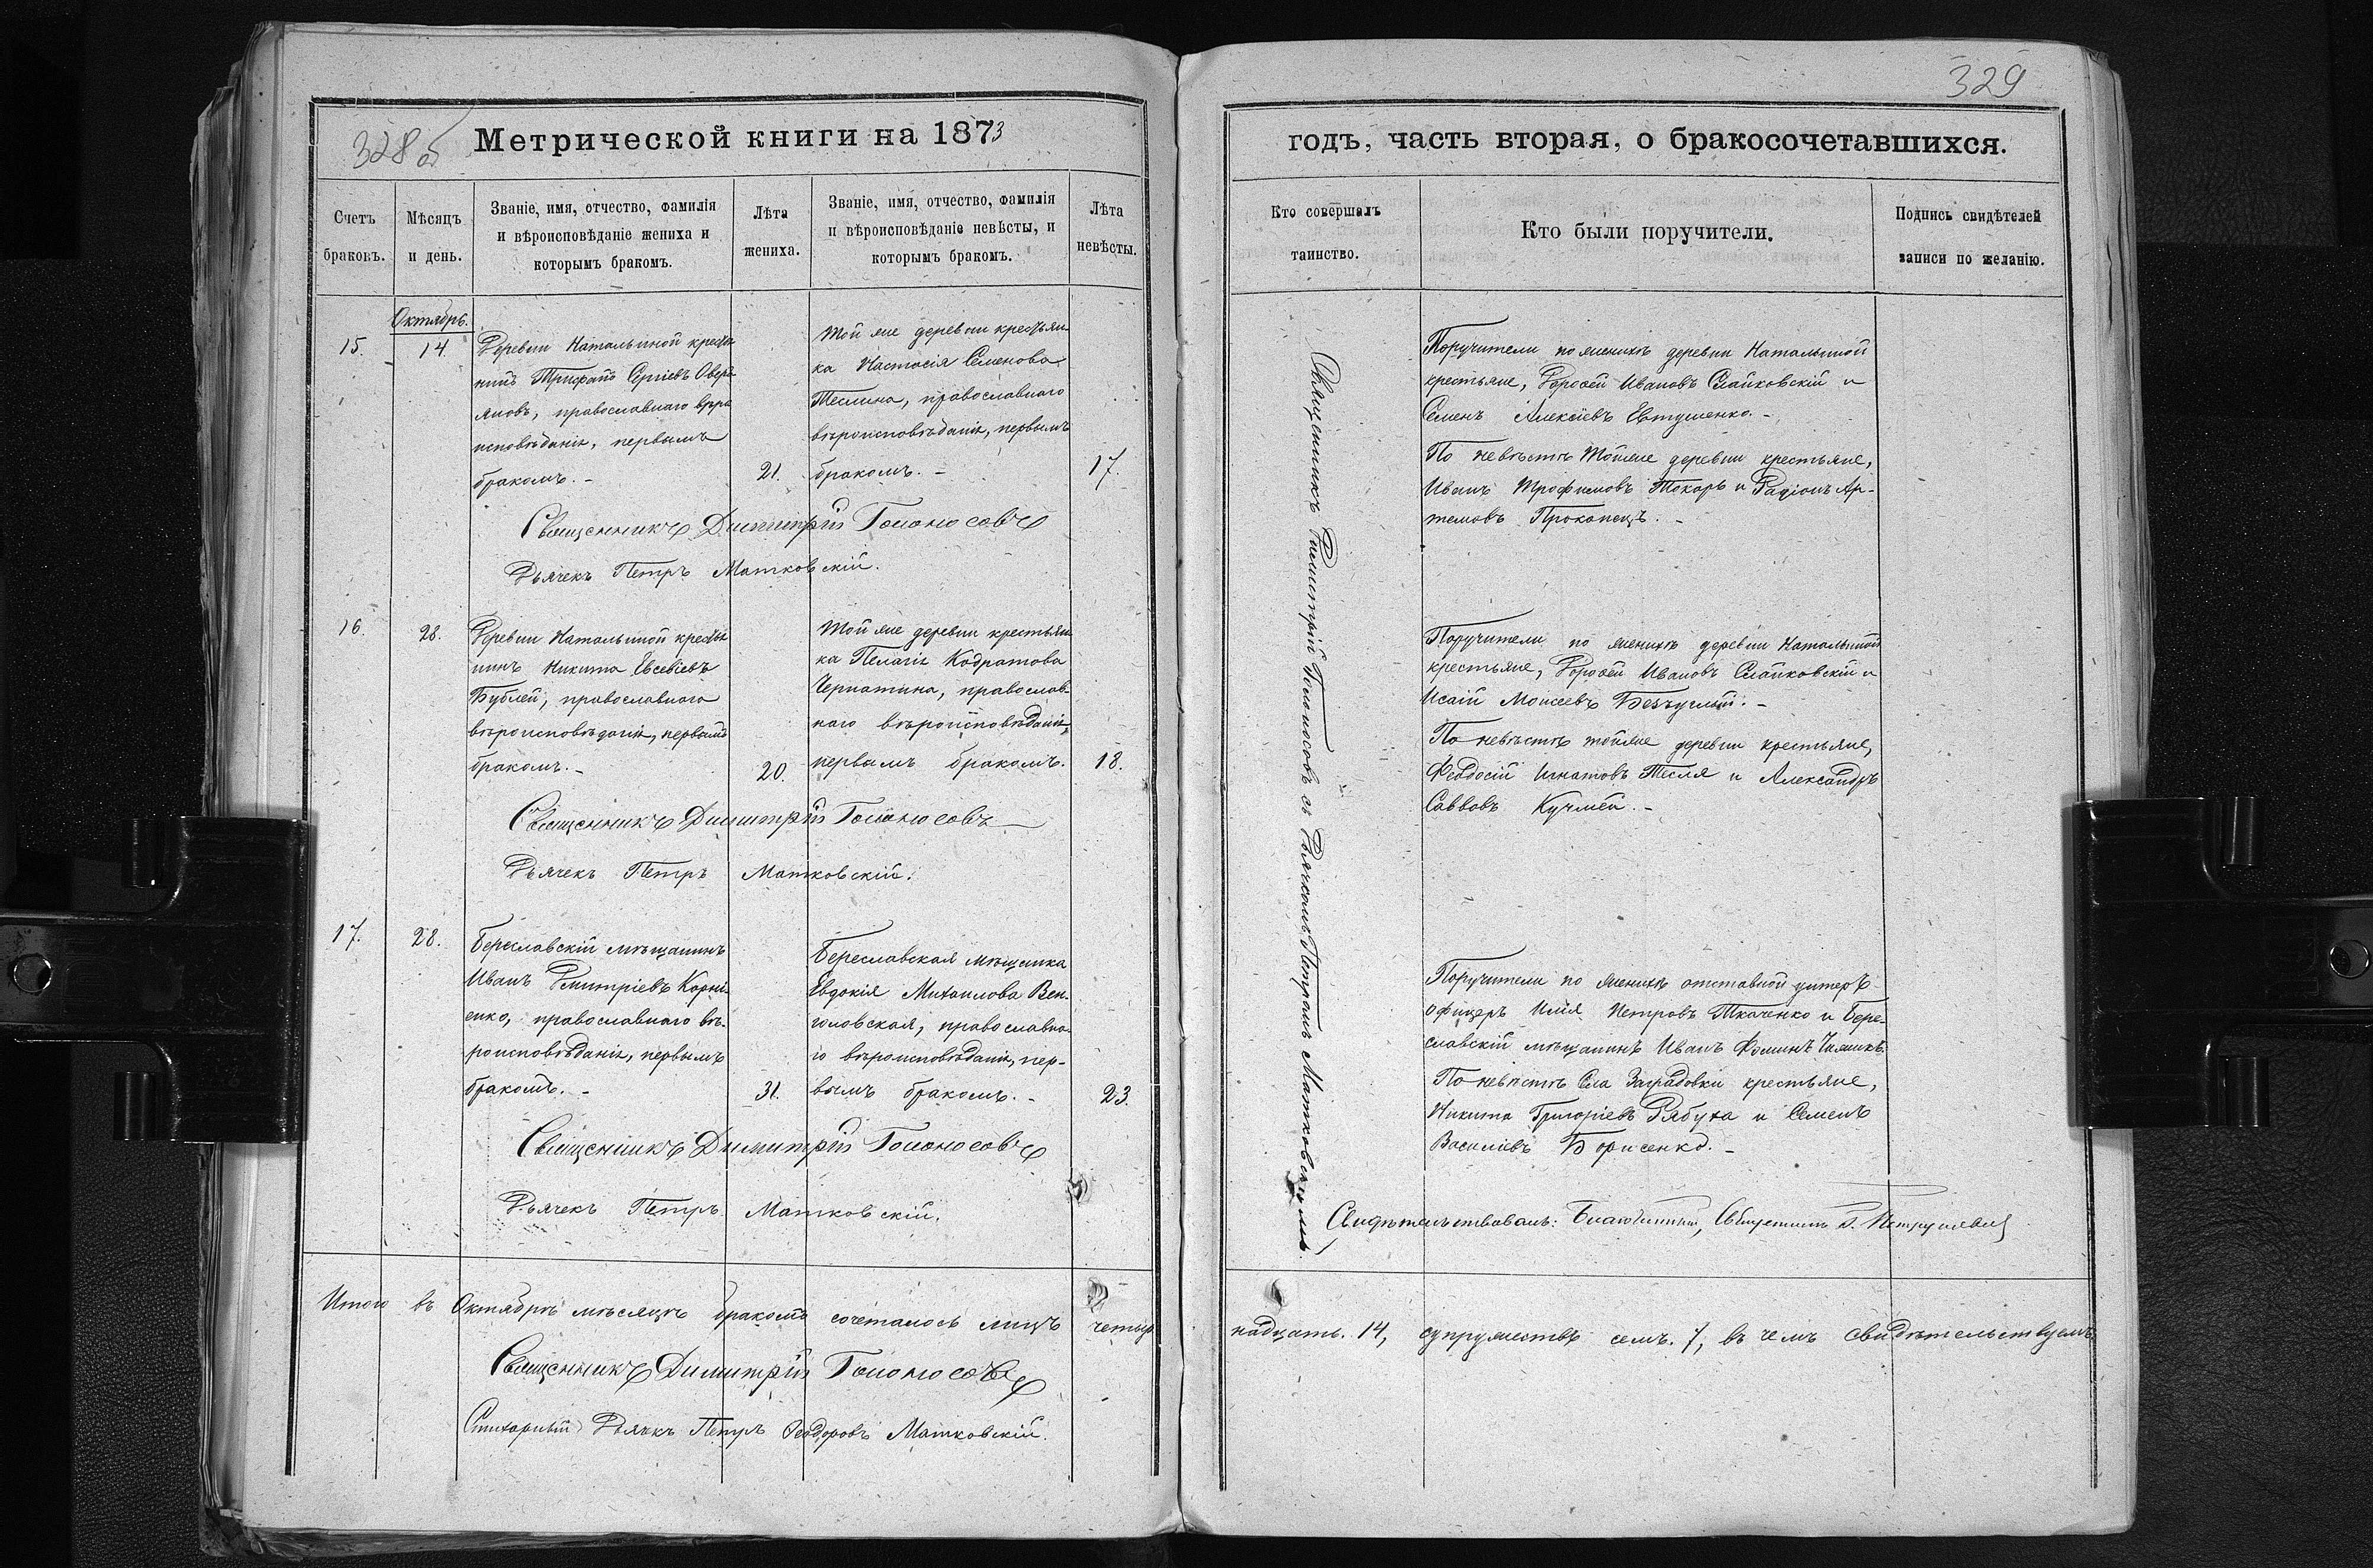 328 об
Метрической книги на 1873
Счетъ браковъ.
Мѣсяцъ и день.
Званіе, имя, отчество, фамилія
и вѣроисповѣданіе жениха и
которымъ бракомъ.
Лѣта жениха.
Званіе, имя, отчество, фамилія
и вѣроисповѣданіе невѣсты, и
которымъ бракомъ.
Лѣта невѣсты.
Октябрь.
15.
14.
Деревни Натальиной крестья
нинъ Трифанъ Сергіевъ Овер
яновъ, православнаго вѣро
исповѣданія, первымъ
бракомъ. -
21.
Той же деревни крестьян
ка Настасія Семенова
Теслина, православнаго
вѣроисповѣданія, первымъ
бракомъ. -
17.
Священникъ Димитрій Голоносовъ
Дьячекъ Петръ Матковскій.
16.
28.
Деревни Натальиной крестья
нинъ Никита Евсевіевъ
Бублей, православнаго
вѣроисповѣданія, первымъ
бракомъ. -
20.
Той же деревни крестьян
ка Пелагія Кодратова
Чернатина, православ-
наго вѣроисповѣданія,
первымъ бракомъ.
18.
Священникъ Димитрій Голоносовъ
Дьячекъ Петръ Матковскій.
17.
28.
Береславскій мѣщанинъ
Иванъ Дмитріевъ Корні-
енко, православнаго вѣ-
роисповѣданія, первымъ
бракомъ. -
31.
Береславская мѣщанка
Евдокія Михаилова Вен-
гловская, православна-
го вѣроисповѣданія, пер-
вымъ бракомъ. -
23.
Священникъ Димитрій Голоносовъ
Дьячекъ Петръ Матковскій.
Итого въ Октябрѣ мѣсяцѣ бракомъ сочеталось лицъ четыр
Священникъ Димитрій Голоносовъ
Стихарный Дьячекъ Петръ Ѳеодоровъ Матковскій.
329
годъ, часть вторая, о бракосочетавшихся.
Кто совершалъ
таинство.
Кто были поручители.
Подпись свидѣтелей
записи по желанію.
Священникъ Димитрій Голоносовъ съ Дьячкомъ Петромъ Матковскимъ.
Поручители по женихѣ деревни Натальиной
крестьяне, Дороѳей Ивановъ Слайковскій и
Семенъ Алексіевъ Евтушенко. -
По невѣстѣ тойже деревни крестьяне,
Иванъ Трофимовъ Токарь и Радіонъ Ар-
темовъ Прокопецъ. -
Поручители по женихѣ деревни Натальиной
крестьяне, Дороѳей Ивановъ Слайковскій и
Исаій Моисеевъ Безуглый. -
По невѣстѣ тойже деревни крестьяне,
Феодосій Игнатовъ Тесля и Александръ
Саввовъ Кучмей. -
Поручители по женихѣ отставной унтеръ-
офицеръ Илія Петровъ Ткаченко и Бере-
славскій мѣщанинъ Иванъ Фоминъ
По невѣстѣ Села Заградовки крестьяне,
Никита Григоріевъ Рябуха и Семенъ
Василіевъ Борисенко. -
Свидѣтельствовалъ: Благочинный, Священникъ
надцать. 14, супружествъ семь. 7, въ чемъ свидѣтельствуемъ